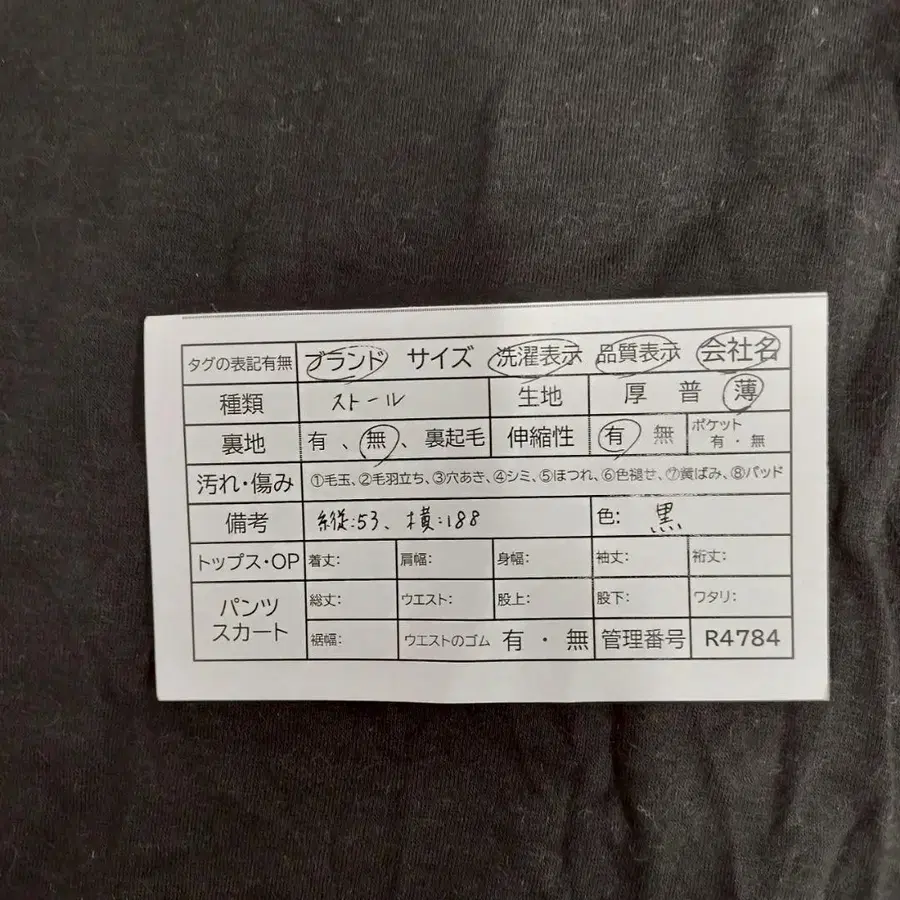 タグの表記有無 ブランド サイズ 洗濯表示 品質表示 会社名
種類 ストール 生地 厚 普 薄
裏地 有 、無、裏起毛 伸縮性 有 無 ポケット 有・無
汚れ・傷み ①毛玉、②毛羽立ち、③穴あき、④シミ、⑤ほつれ、⑥色褪せ、⑦黄ばみ、⑧パッド
備考 縦:53、横:188 色: 黒
トップス・OP 着丈: 肩幅: 身幅: 袖丈: 裄丈:
パンツ スカート 総丈: ウエスト: 股上: 股下: ワタリ:
裾幅: ウエストのゴム 有 ・ 無 管理番号 R4784